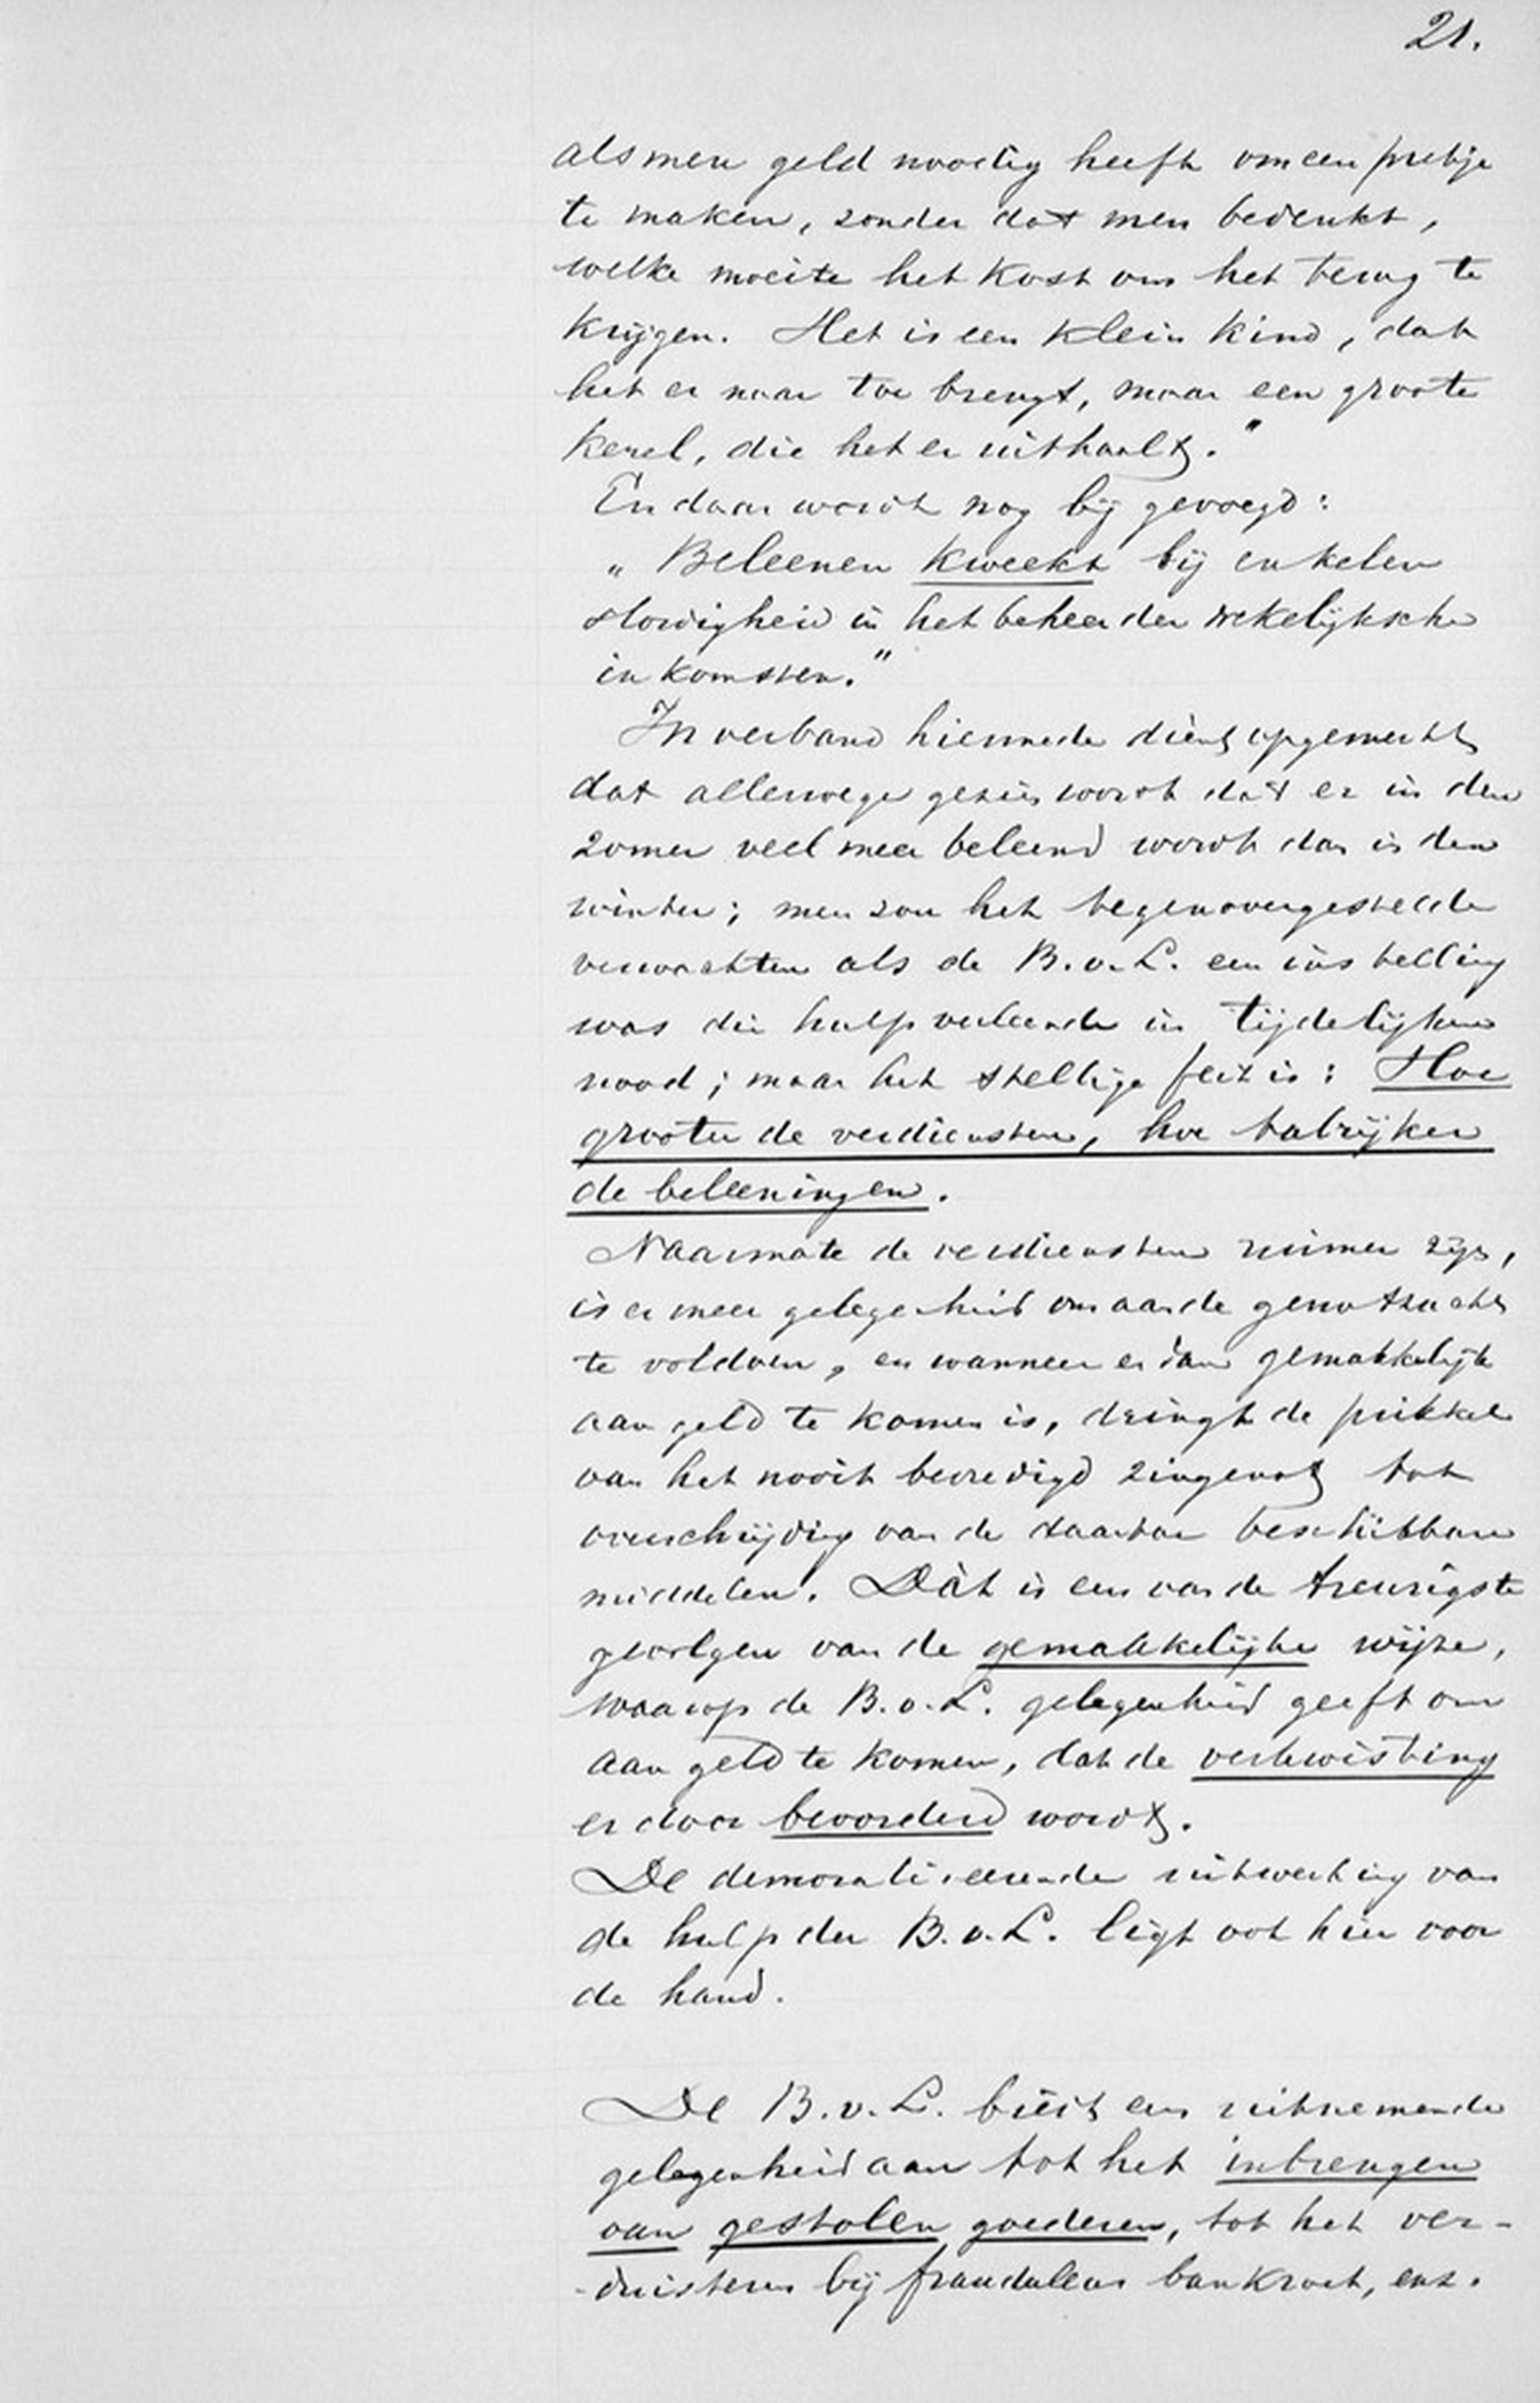 21.
als men geld noodig heeft om een pretje
te maken, zonder dat men bedenkt,
welke moeite het kost om het terug te
krijgen. Het is een klein kind, dat
het er naar toe brengt, maar een groote
kerel, die het er uithaalt."
En daar wordt nog bij gevoegd:
„Beleenen kweekt bij enkelen
slordigheid in het beheer der wekelijksche
inkomsten."
In verband hiermede dient opgemerkt
dat allerwege gezien wordt dat er in den
zomer veel meer beleend wordt dan in den
winter; men zou het tegenovergestelde
verwachten als de B.v.L. een instelling
was die hulp verleende in tijdelijken
nood; maar het stellige feit is: Hoe
grooter de verdiensten, hoe talrijker
de beleeningen.
Naarmate de verdiensten ruimer zijn,
is er meer gelegenheid om aan de genotzucht
te voldoen, en wanneer er dan gemakkelijk
aan geld te komen is, dringt de prikkel
van het nooit bevredigd zingenot tot
overschrijding van de daartoe beschikbare
middelen. Dàt is een van de treurigste
gevolgen van de gemakkelijke wijze,
waarop de B.v.L. gelegenheid geeft om
aan geld te komen, dat de verkwisting
er door bevorderd wordt.
De demoraliseerende uitwerking van
de hulp der B.v.L. ligt ook hier voor
de hand.
De B.v.L. biedt een uitnemende
gelegenheid aan tot het inbrengen
van gestolen goederen, tot het ver-
-duisteren bij frauduleus bankroet, enz.